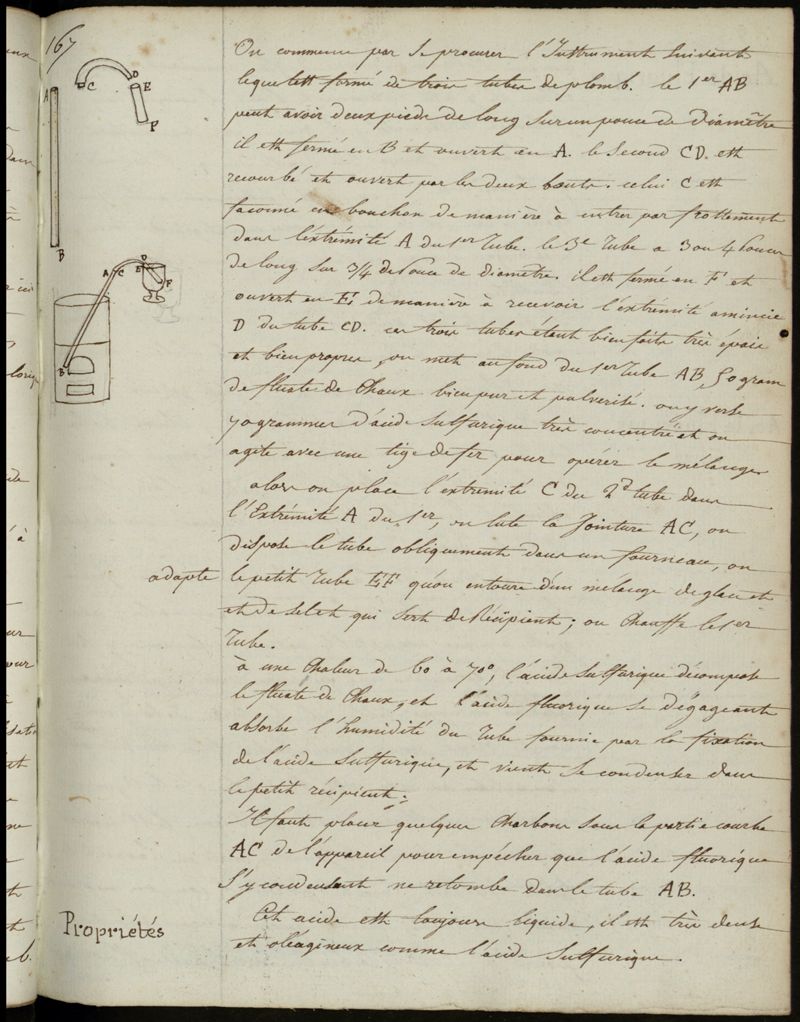 167
On commence par se procurer l'Instrument suivant
lequel est formé de trois tubes de plomb. le 1er AB
peut avoir deux pieds de long sur un pouce de diamêtre
il est fermé en B et ouvert en A. le Second CD. est
recourbé et ouvert par les deux bouts. celui C est
façonné en bouchon de manière à entrer par frottement
dans l'éxtrémité A du 1er Tube. le 3e Tube a 3 ou 4 Pouces
de long sur 3/4 de Pouce de diametre. il est fermé en F et
ouvert en E, de manière à recevoir l'éxtrémité amincie
D du tube CD. ces trois tubes étant bien faits très épais
et bien propres, on met au fond du 1er Tube AB, 50 gram
de fluate de Chaux bien pur et pulverisé. on y verse
70 grammes d'acide Sulfurique très concentré et on
agite avec une tige de fer pour opérer le mélange
alors on place l'extremité C du 2d tube dans
l'Extrémité A du 1er, on lute la Jointure AC, on
dispose le tube obliquement dans un fourneau, on
adapte le petit Tube EF qu'on entoure d'un mélange de glace et
et de sel et qui sert de Récipient; on Chauffe le 1er
Tube.
à une Chaleur de 60 à 70°, l'acide Sulfurique décompose
le fluate de Chaux, et l'acide fluorique se dégageant
absorbe l'humidité du Tube fournie par la fixation
de l'acide Sulfurique, et vient se condenser dans
le petit récipient.
Il faut placer quelques Charbons sous la partie courbe
AC de l'appareil pour empécher que l'acide fluorique
s'y condensant ne retombe dans le tube AB.
Propriétés
Cet acide est toujours liquide, il est très dense
et oléagineux comme l'acide Sulfurique.
A
C
D
E
F
B
A
C
D
E
F
B